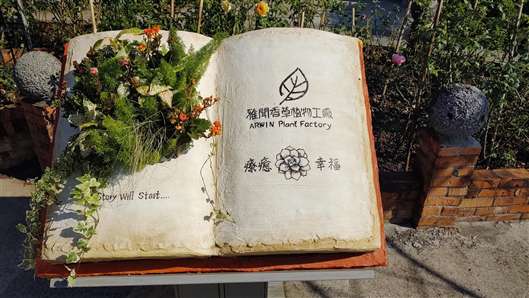 Story Will Start....
雅聞香草植物工廠
ARWIN Plant Factory
療癒 幸福